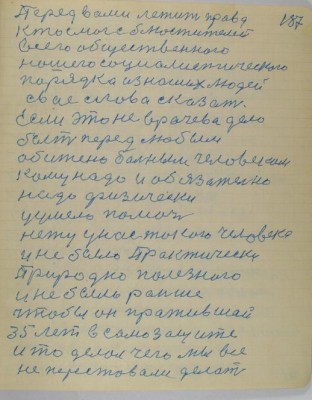 Перед вами летит правд 187
кто смог с блюстителей
всего общественного
нашего социалистического
порядка из наших людей
свае слова сказат.
Если это не врачева дело
быт перед любым
обитено болным человеком
кому надо и обязательно
надо физически
уумело помоч
нету у нас токого человека
и не было практически
природно полезного
и не было раньше
чтобы он праживший
35 лет в самозащите
и то делал чего мы все
не перестовали делат